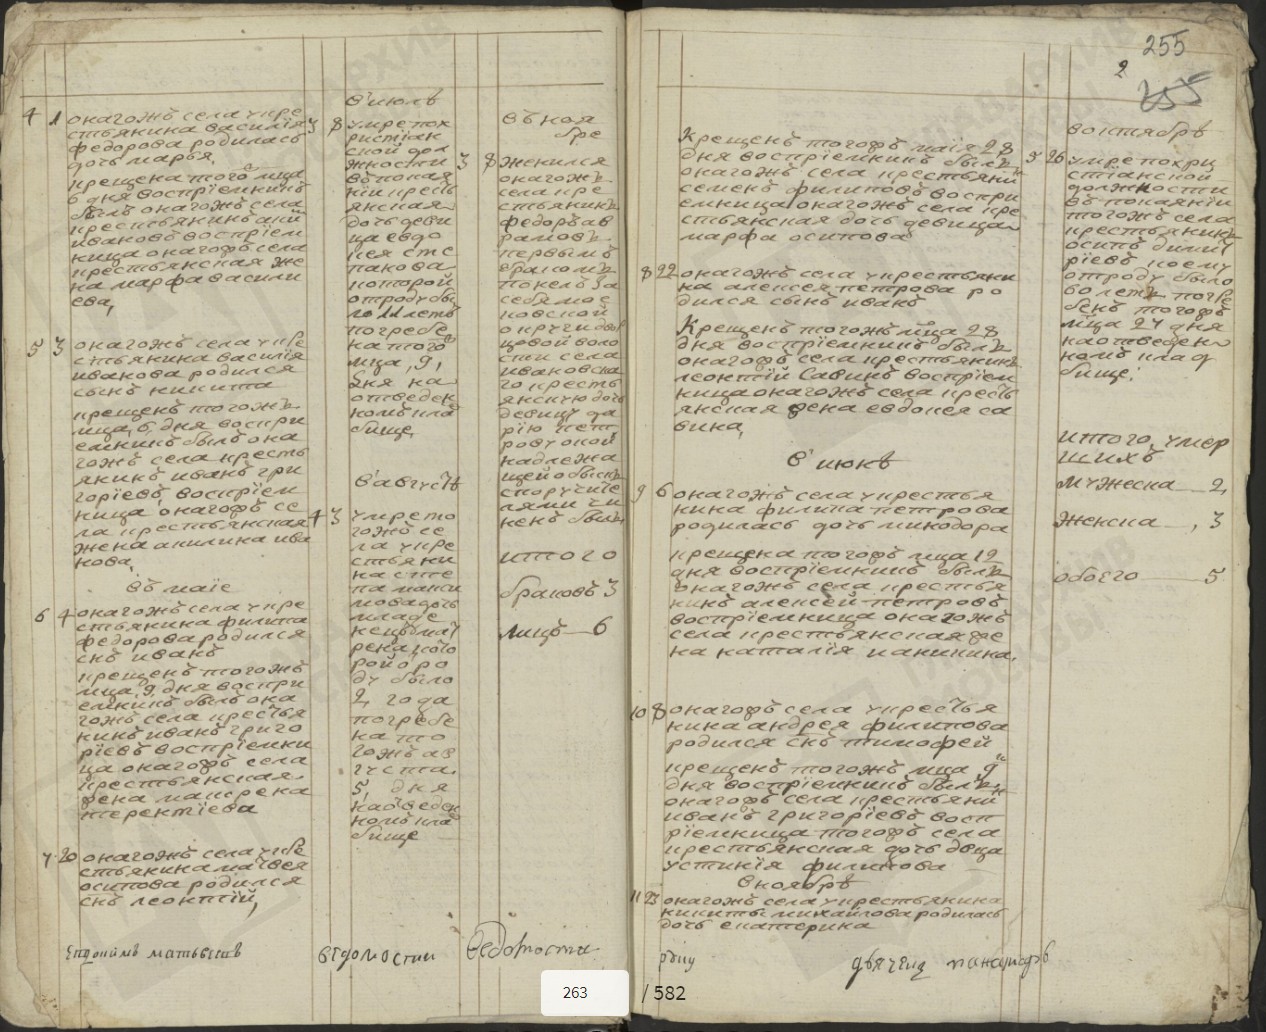 4 1 онагожъ села укре
стьянина василия
федорова родилась
дочь марья,
крещена того мца
6 дня воспрїемникъ
былъ онагожъ села
крестьянинъ
ивановъ воспрїем
ница онагожъ села
крестьянская же
на марфа васили
ева,
5 3 онагожъ села укре
стьянина василїя
иванова родился
сынъ никита
крещенъ тогожъ
мца, 6, дня воспри
емникъ былъ она
гожъ села кресть
янинъ иванъ гри
горїевъ, воспрїем
ница, онагожъ се
ла крестьянская
жена акилина ива
нова,
въ маїе
6 4 онагожъ села укре
стьянина филипа
федорова родился
снъ иванъ
крещенъ тогожъ
мца, 9, дня воспри
емникъ былъ она
гожъ села крестья
нинъ иванъ григо
рїевъ воспрїемни
ца онагожъ села
крестьянская
жена
терентїева
7 20 онагожъ села укре
стьянина матвея
осипова родился
снъ леонтїй,
в июлѣ
3 8 умре пох
ристїан
ской дол
жности
въ покая
нїи кресть
янская
дочь деви
ца евдо
кея сте
панова
которой
отроду бы
ло 11 летъ
погребе
на того
мца, 9,
дня на
отведен
номъ кла
бище,
в августѣ
4 3 умре то
гожъ се
ла укре
стьяни
на сте
пана макси
мова дочь
младе
нецъ
рена кото
рой о ро
ду было
2 года
погребе
на то
гожъ ав
густа
5, дня
на отведен
номъ кла
бище
въ ноя
бре
3 8 женился
онагожъ
села кре
стьянинъ
федоръ ав
рамовъ
первымъ
бракомъ
понелъ за
себя мос
ковской
округи двор
цовой воло
сти села
ивановска
го кресть
янскую дочь
девицу да
рїю пет
рову о ной
надлежа
щей обыскъ
с поручите
лями чи
ненъ былъ
итого
браковъ 3
лицъ 6
ведомости
ведомости
255
2
255
Крещенъ тогожъ маїя 28
дня воспрїемникъ былъ
онагожъ села крестьянинъ
семенъ филиповъ воспри
емница онагожъ села кре
стьянская дочь девица
марфа осипова
8 22 онагожъ села укрестьяни
на алексея петрова ро
дился сынъ иванъ
Крещенъ тогожъ мца 28
дня воспрїемникъ былъ
онагожъ села крестьянинъ
леонтїй Савинъ воспрїем
ница онагожъ села кресть
янская жена евдокея са
вина,
в июнѣ
9 6 онагожъ села укрестья
нина филипа петрова
родилась дочь минодора
крещена тогожъ мца 12
дня воспрїемникъ былъ
онагожъ села крестья
нинъ алексей петровъ
воспрїемница онагожъ
села крестьянская же
на наталїя
10 8 онагожъ села укрестья
нина андрея филипова
родился снъ тимофей
крещенъ тогожъ мца 9
дня воспрїемникъ былъ
онагожъ села крестьянинъ
иванъ григорїевъ восп
рїемница тогожъ села
крестьянская дочь двца
устинїя филипова
в ноябрѣ
11 23 онагожъ села укрестьянина
никиты михайлова родилась
дочь екатерина
в октябрѣ
5 26 умре по хри
стїанской
должности
въ покаянїи
тогожъ села
крестьянинъ
осипъ дмит
рїевъ коему
отроду было
60 летъ погре
бенъ тогожъ
мца 27 дня
на отведен
номъ клад
бище:
итого умер
шихъ
мужеска 2,
женска 3
обоего 5
263 / 582